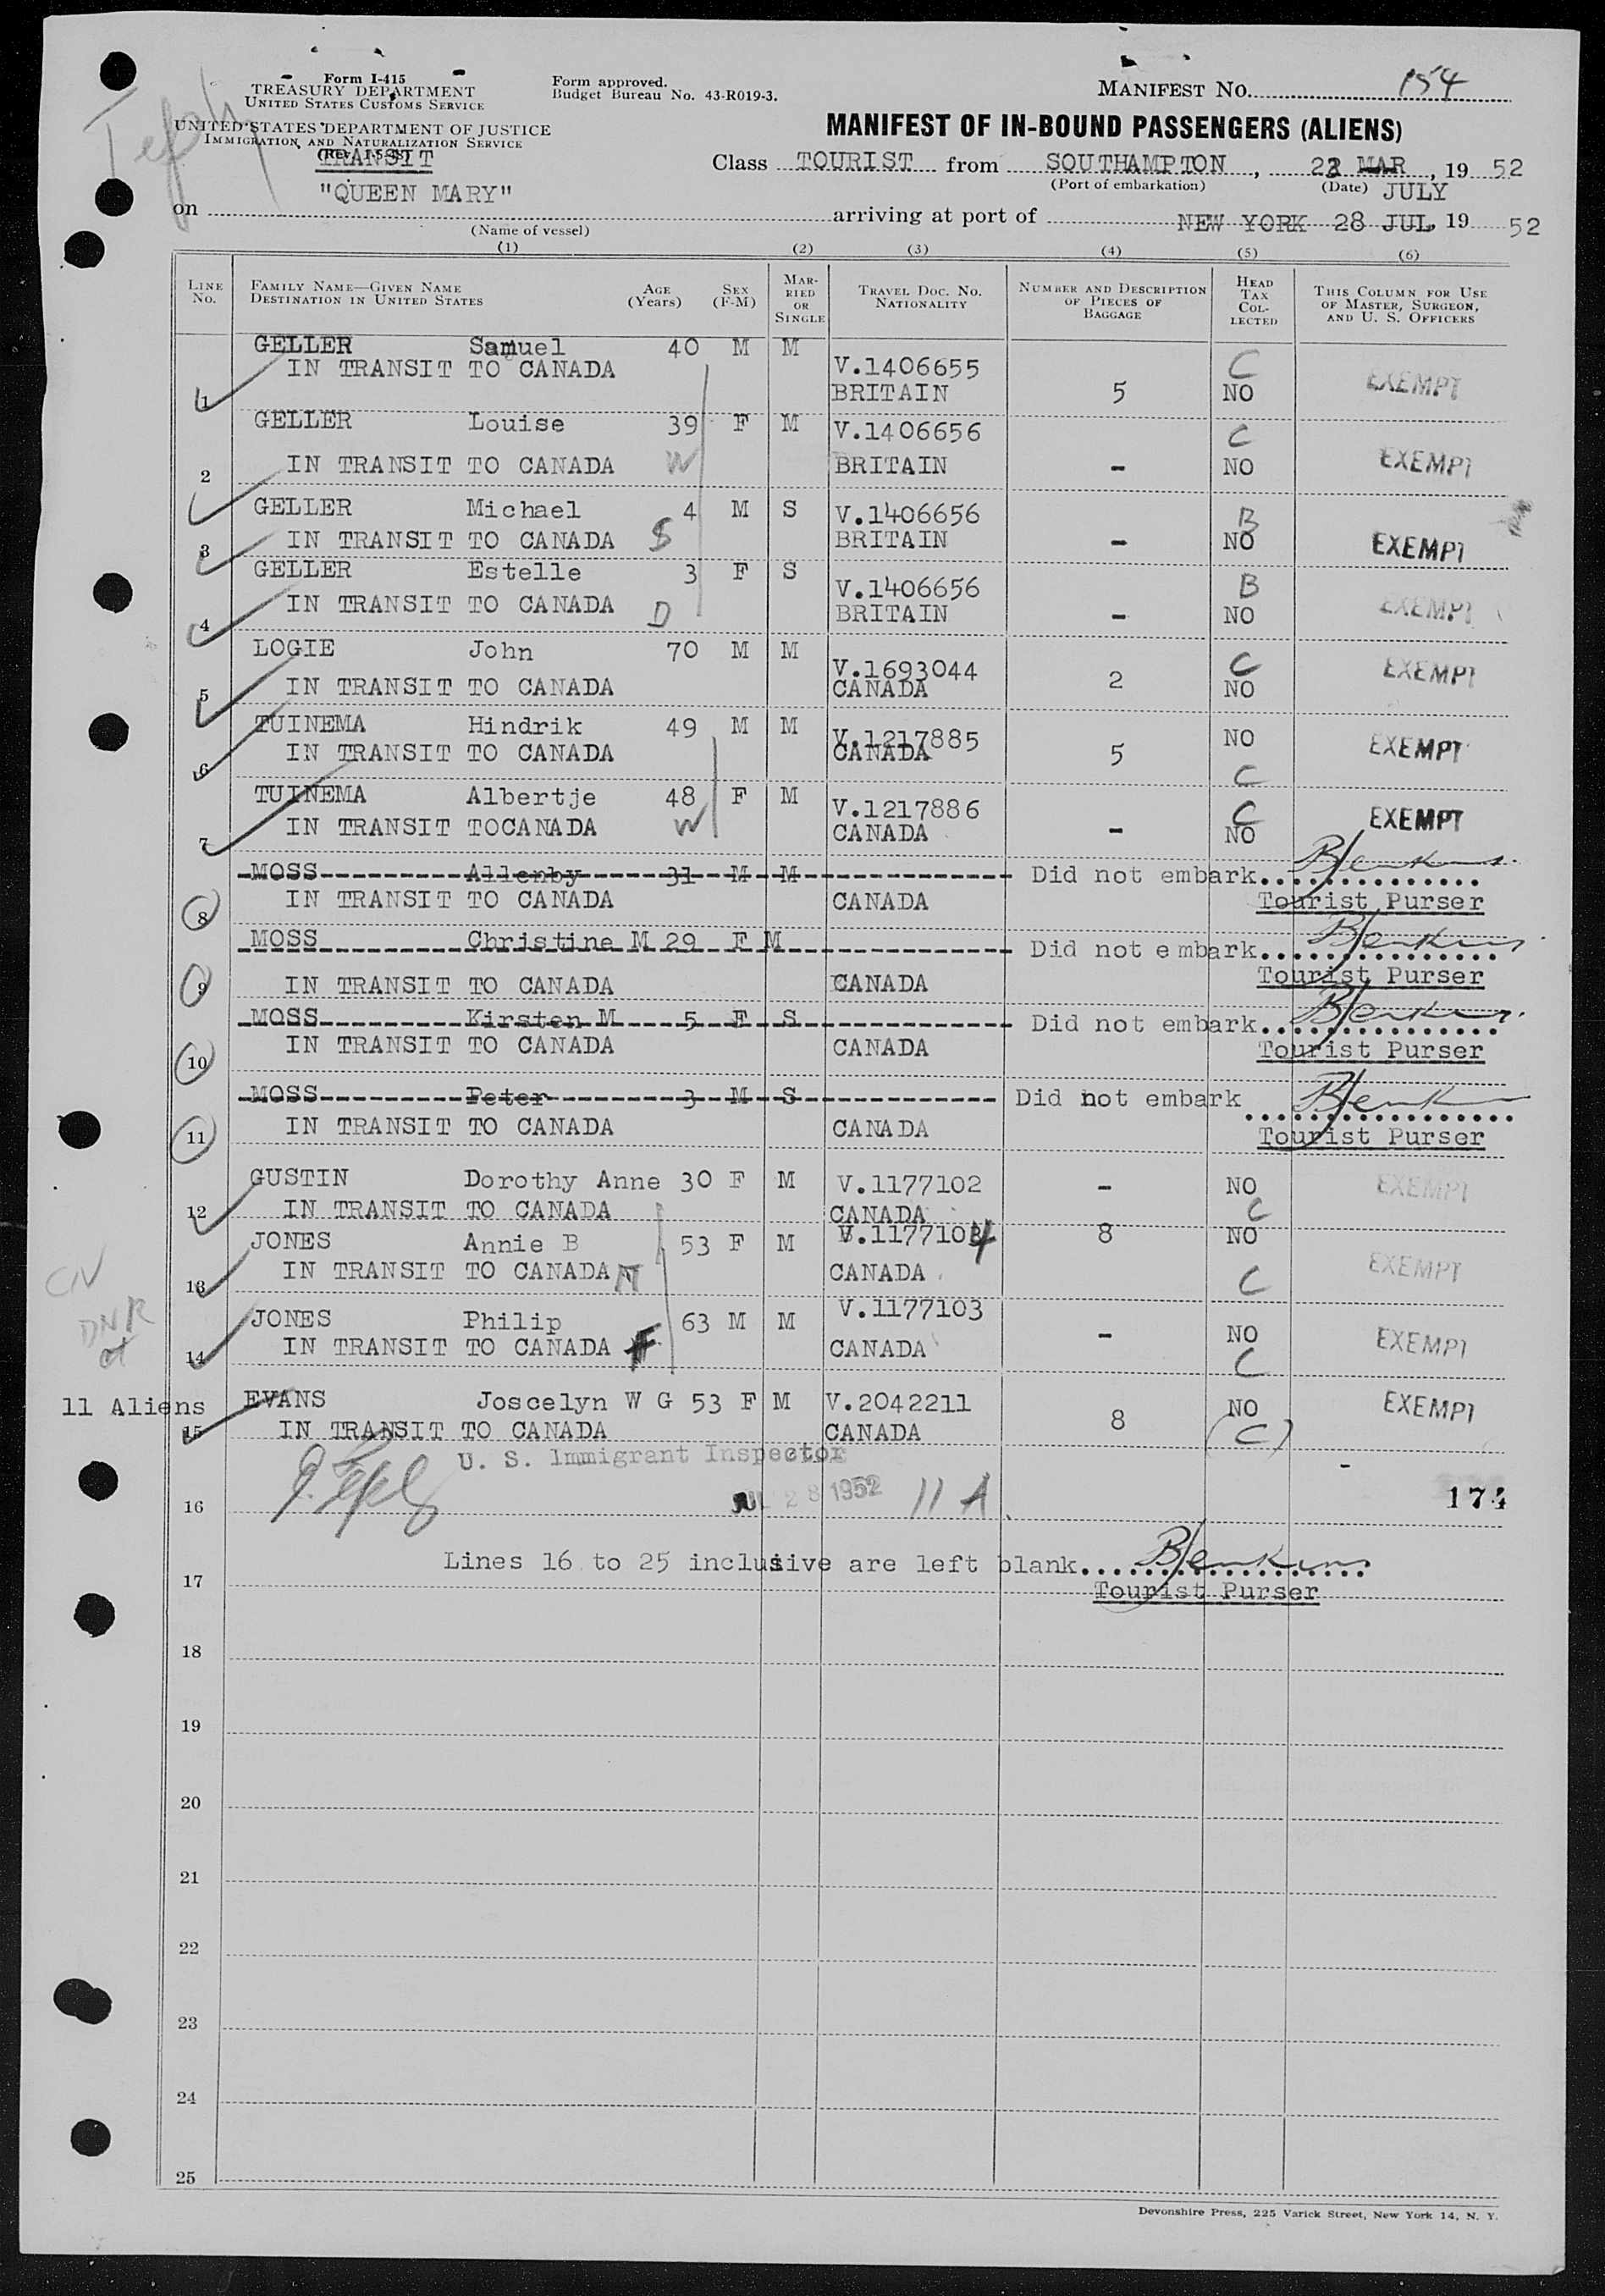 Form I-415
TREASURY DEPARTMENT
UNITED STATES CUSTOMS SERVICE
Form approved.
Budget Bureau No. 43-R019-3.
MANIFEST No. 154
UNITED STATES DEPARTMENT OF JUSTICE
IMMIGRATION AND NATURALIZATION SERVICE
TRANSIT
MANIFEST OF IN-BOUND PASSENGERS (ALIENS)
Class TOURIST from SOUTHAMPTON, 23 MAR, 19 52
(Port of embarkation) (Date) JULY
on "QUEEN MARY" arriving at port of NEW YORK 28 JUL, 19 52
(Name of vessel)
(1) (2) (3) (4) (5) (6)
LINE No. FAMILY NAME—GIVEN NAME DESTINATION IN UNITED STATES AGE (Years) SEX (F-M) MARRIED OR SINGLE TRAVEL DOC. No. NATIONALITY NUMBER AND DESCRIPTION OF PIECES OF BAGGAGE HEAD TAX COLLECTED THIS COLUMN FOR USE OF MASTER, SURGEON, AND U. S. OFFICERS
GELLER Samuel 40 M M V.1406655 C
1 IN TRANSIT TO CANADA BRITAIN 5 NO EXEMPT
GELLER Louise 39 F M V.1406656 C
2 IN TRANSIT TO CANADA W BRITAIN - NO EXEMPT
GELLER Michael 4 M S V.1406656 B
3 IN TRANSIT TO CANADA S BRITAIN - NO EXEMPT
GELLER Estelle 3 F S V.1406656 B
4 IN TRANSIT TO CANADA D BRITAIN - NO EXEMPT
LOGIE John 70 M M V.1693044 C
5 IN TRANSIT TO CANADA CANADA 2 NO EXEMPT
TUINEMA Hindrik 49 M M V.1217885 NO
6 IN TRANSIT TO CANADA CANADA 5 C EXEMPT
TUINEMA Albertje 48 F M V.1217886 C
7 IN TRANSIT TOCANADA W CANADA - NO EXEMPT
MOSS Allenby 31 M M Did not embark. BJenkins
8 IN TRANSIT TO CANADA CANADA Tourist Purser
MOSS Christine M 29 F M Did not embark. BJenkins
9 IN TRANSIT TO CANADA CANADA Tourist Purser
MOSS Kirsten M 5 F S Did not embark. BJenkins
10 IN TRANSIT TO CANADA CANADA Tourist Purser
MOSS Peter 3 M S Did not embark BJenkins
11 IN TRANSIT TO CANADA CANADA Tourist Purser
GUSTIN Dorothy Anne 30 F M V.1177102 - NO EXEMPT
12 IN TRANSIT TO CANADA CANADA C
JONES Annie B 53 F M V.1177104 8 NO EXEMPT
13 IN TRANSIT TO CANADA M CANADA C
JONES Philip 63 M M V.1177103 - NO EXEMPT
14 IN TRANSIT TO CANADA F CANADA C
11 Aliens EVANS Joscelyn W G 53 F M V.2042211 NO EXEMPT
15 IN TRANSIT TO CANADA CANADA 8 (C)
U. S. Immigrant Inspector
16 JUL 28 1952 11 A 174
Lines 16 to 25 inclusive are left blank. BJenkins
17 Tourist Purser
18
19
20
21
22
23
24
25
Devonshire Press, 225 Varick Street, New York 14, N. Y.